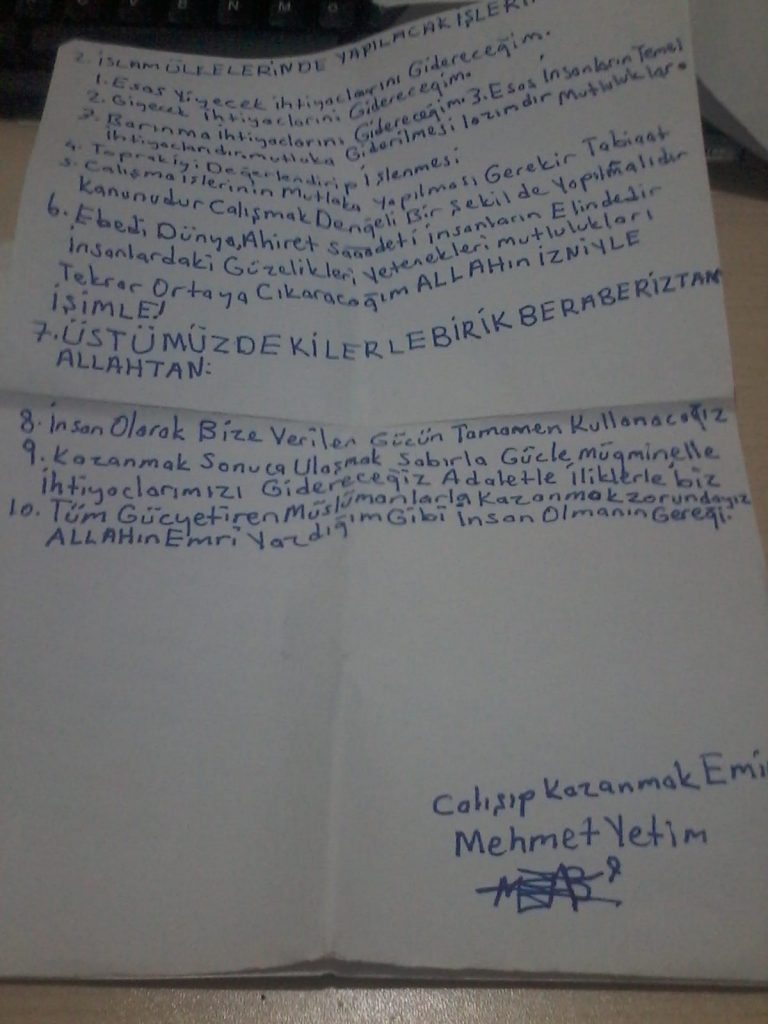 2. İSLAM ÜLKELERİNDE YAPILACAK İŞLERİ
1. Esas Yiyecek ihtiyaçlarını Gidereceğim.
2. Giyecek ihtiyaçlarını Gidereceğim.
3. Barınma ihtiyaçlarını Gidereceğim. 3. Esas İnsanların Temel
ihtiyaçlarıdır mutlaka Giderilmesi lazımdır mutluluklar.
4. Toprakiyi Değerlendirip İşlenmesi
5. Çalışma işlerinin Mutlaka yapılması Gerekir Tabiaat
Kanunudur Çalışmak Dengeli Bir Şekilde Yapılmalıdır
6. Ebedi Dünya, Ahiret Saadeti insanların Elindedir
insanlardaki Güzelikleri Yetenekleri mutlulukları
Tekrar Ortaya Çıkaracağım ALLAHın İZNİYLE
İŞİMLE!
7. ÜSTÜMÜZDEKİLERLEBİRİK BERABERİZTAM
ALLAHTAN:
8. İnsan Olarak Bize Verilen Gücün Tamamen Kullanacağız
9. Kazanmak Sonuca Ulaşmak Sabırla Güçle müğminelle
İhtiyaclarımızı Gidereceğiz Adaletle iliklerle biz
10. Tüm Gücyetiren Müslümanlarla Kazanmak zorundayız
ALLAHın Emri Yazdığım Gibi İnsan Olmanın Gereği.
Calışıp Kazanmak Emi
Mehmet Yetim